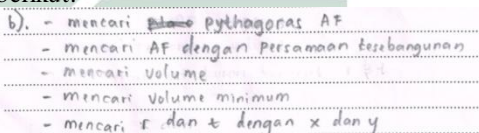 berikut:
b). - mencari pythagoras AF
- mencari AF dengan persamaan kesebangunan
- mencari volume
- mencari volume minimum
- mencari r dan t dengan x dan y